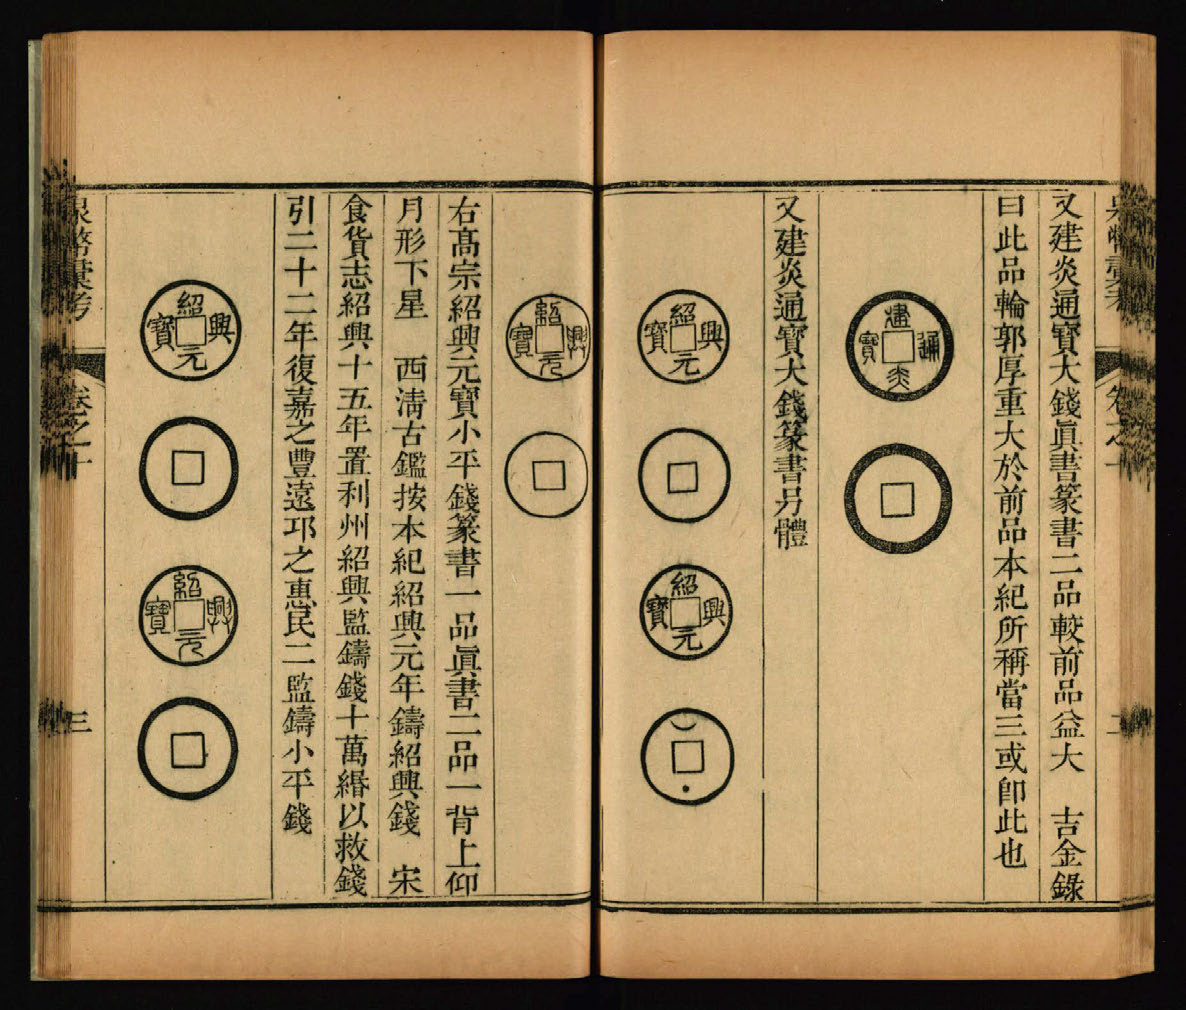 又建炎通寶大錢眞書篆書二品較前品益大　吉金錄
曰此品輪郭厚重大於前品本紀所稱當三或卽此也
建炎通寶
又建炎通寶大錢篆書另體
紹興元寶
紹興元寶
紹興元寶
右高宗紹興元寶小平錢篆書一品眞書二品一背上仰
月形下星　西淸古鑑按本紀紹興元年鑄紹興錢　宋
食貨志紹興十五年置利州紹興監鑄錢十萬緡以救錢
引二十二年復嘉之豐遠邛之惠民二監鑄小平錢
紹興元寶
紹興元寶
泉幣彙考
卷之十
三